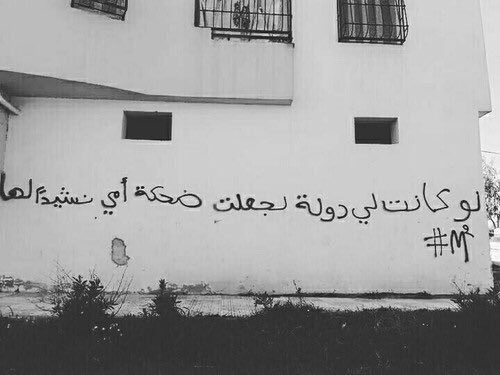 لو كانت لي دولة لجعلت ضحكة أمي نشيدًا لها
#M²